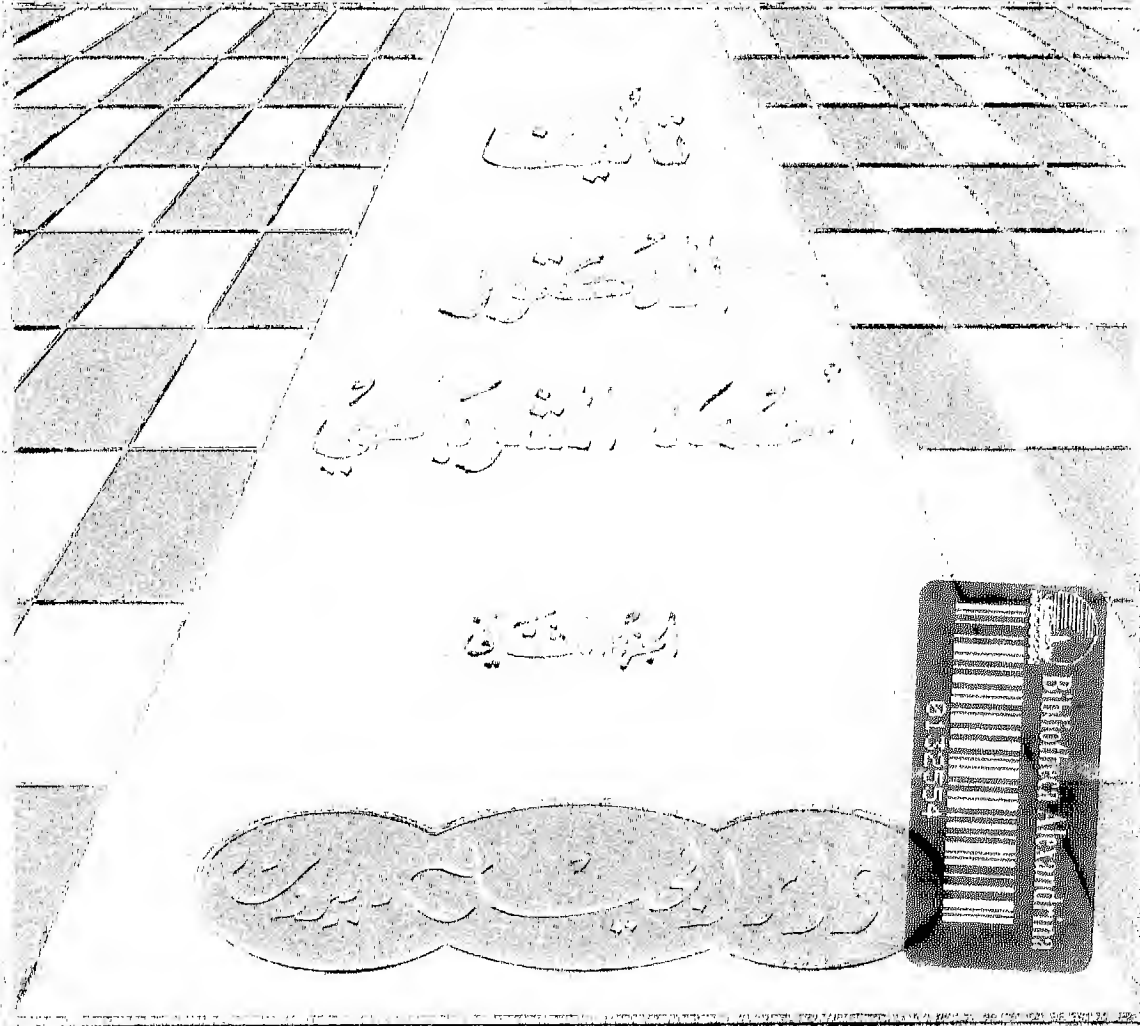 تأليف
الدكتور
أحمد الشرباصي
الجزء الثاني
دار الجيل بيروت
BIBLIOTHECA ALEXANDRINA
0132554